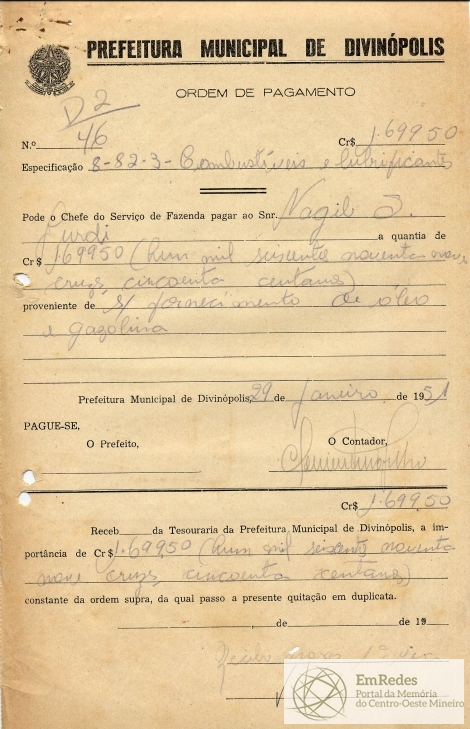 PREFEITURA MUNICIPAL DE DIVINÓPOLIS
ORDEM DE PAGAMENTO
D 2
N.º 46 Cr$ 1.699,50
Especificação 8-82-3- Combustíveis e lubrificantes
Pode o Chefe do Serviço de Fazenda pagar ao Snr. Nagib J.
a quantia de
Cr$ 1.699,50 (hum mil seiscentos noventa nove
cruzs cincoenta centavos)
proveniente de s/ fornecimento de óleo
e gazolina
Prefeitura Municipal de Divinópolis, 29 de Janeiro de 1951
PAGUE-SE,
O Prefeito, O Contador,
Cr$ 1.699,50
Receb da Tesouraria da Prefeitura Municipal de Divinópolis, a im-
portância de Cr$ 1.699,50 (hum mil seiscents noventa
nove cruzs cincoenta centavos)
constante da ordem supra, da qual passo a presente quitação em duplicata.
de de 19
EmRedes
Portal da Memória
do Centro-Oeste Mineiro